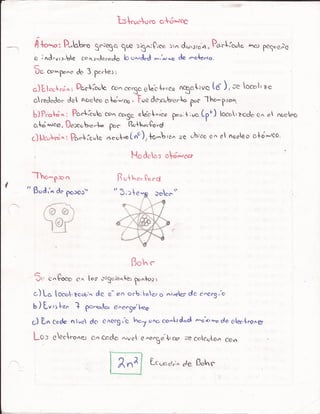 Estructura atómica
Átomo: Palabra griega que significa sin división, Partícula mas pequeña
e indivisible considerada la unidad mínima de materia.
Se compone de 3 partes:
a) Electrón: Partícula con carga eléctrica negativa (e⁻), se localiza
alrededor del núcleo atómico. Fue descubierto por Thompson
b) Protón: Partícula con carga eléctrica positiva (p⁺) localizada en el núcleo
atómico. Descubierto por Rutherford
c) Neutrón: Partícula neutra (n°), también se ubica en el núcleo atómico.
Modelos atómicos
Thompson
Rutherford
"Budín de pasas"
"Sistema solar"
Bohr
Se enfoco en los siguientes puntos:
a) La localización de e⁻ en orbitales o niveles de energía
b) Existen 7 paredes energéticas
c) En cada nivel de energía hay una cantidad máxima de electrones
Los electrones en cada nivel energético se calculan con
2n²
Ecuación de Bohr